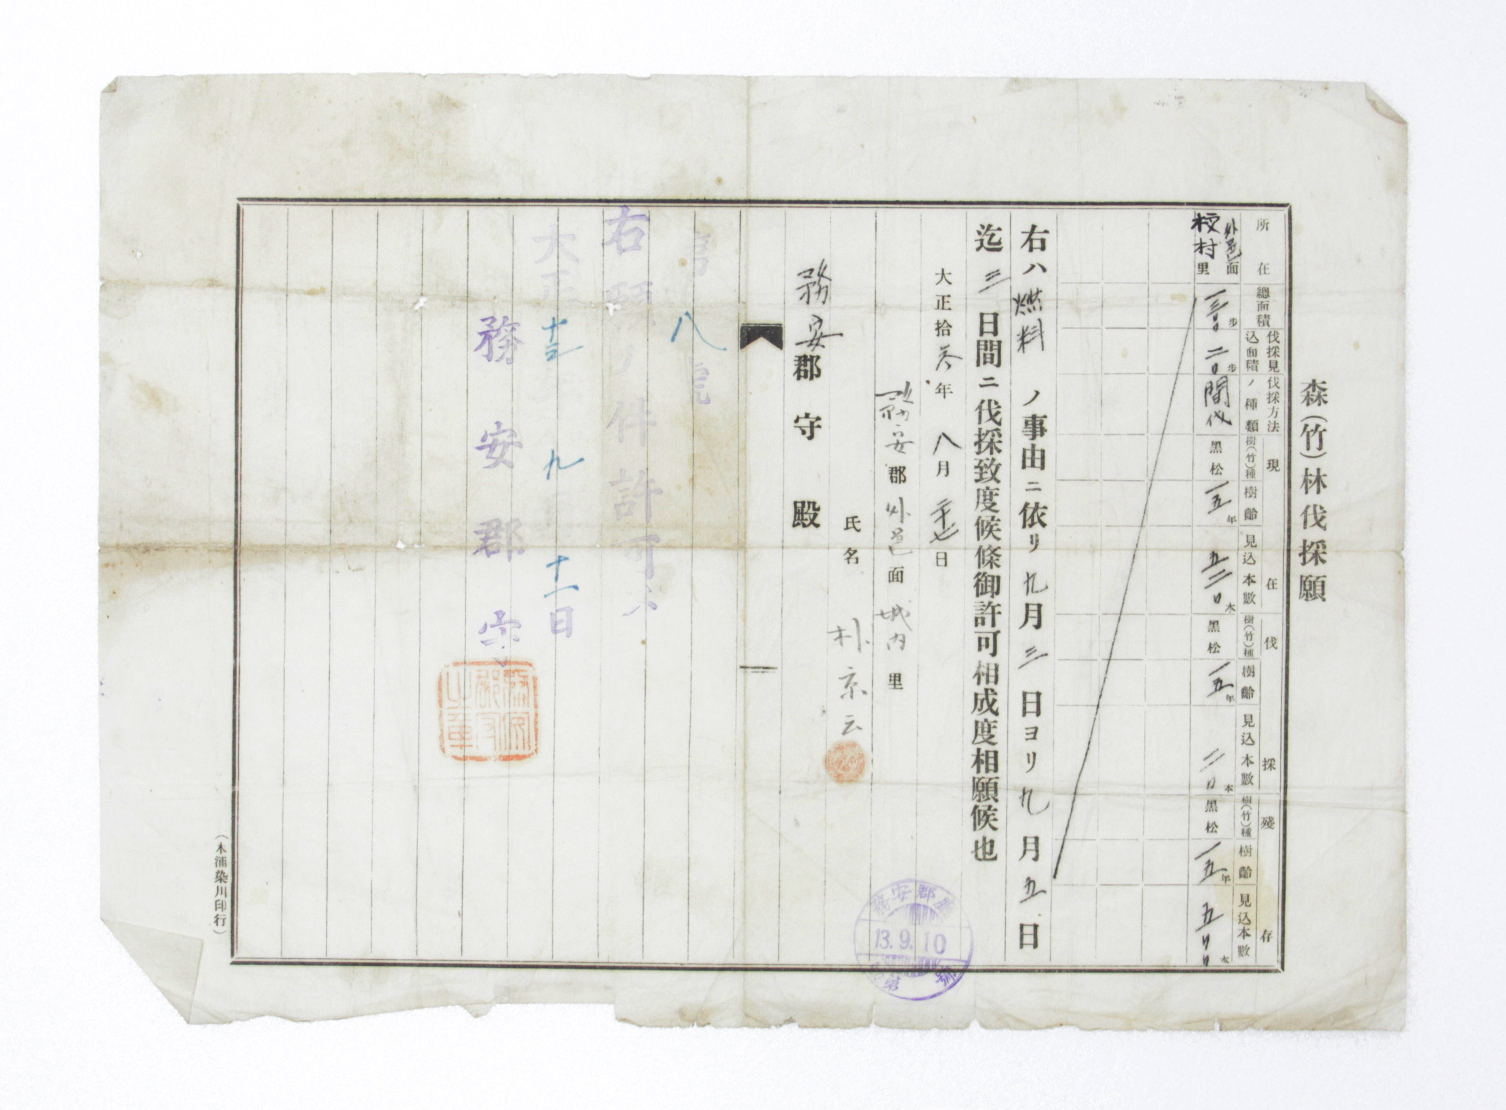 森(竹)林伐採願
所在
總面積
伐採見込面積
伐採方法ノ種類
現在
樹(竹)種
樹齡
見込本數
伐採
樹(竹)種
樹齡
見込本數
殘存
樹(竹)種
樹齡
見込本數
外邑面
校村里
步
二〇步
間伐
黑松
一五年
五二〇本
黑松
一五年
二〇本
黑松
一五年
五〇〇本
右ハ燃料ノ事由ニ依リ九月三日ヨリ九月五日
迄三日間ニ伐採致度候條御許可相成度相願候也
大正拾叁年八月二十七日
務安郡外邑面城內里
氏名 朴京云
務安郡守殿
八號
右願ノ件許可ス
大正十三年九月十一日
務安郡守
務安郡守之章
務安郡
13.9.10
(木浦染川印行)